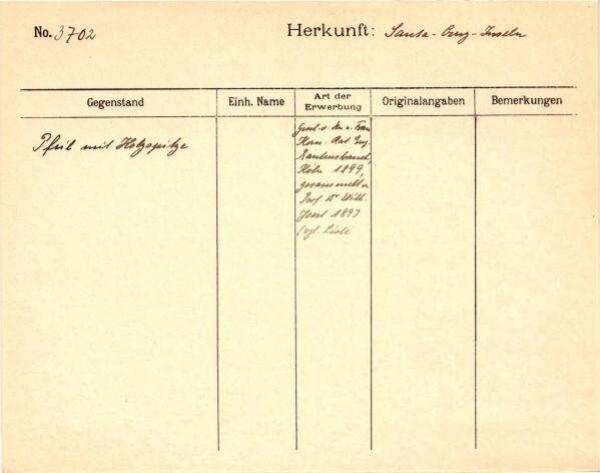 No. 3702
Herkunft: Santa-Cruz-Inseln
Gegenstand
Einh. Name
Art der Erwerbung
Originalangaben
Bemerkungen
Pfeil mit Holzspitze
Gesch. v. Hrn u. Frau
Kom. Rat Eug.
Rautenstrauch,
Köln 1899,
gesammelt v.
Prof. Dr Wilh.
Joest 1897
(vgl. Liste